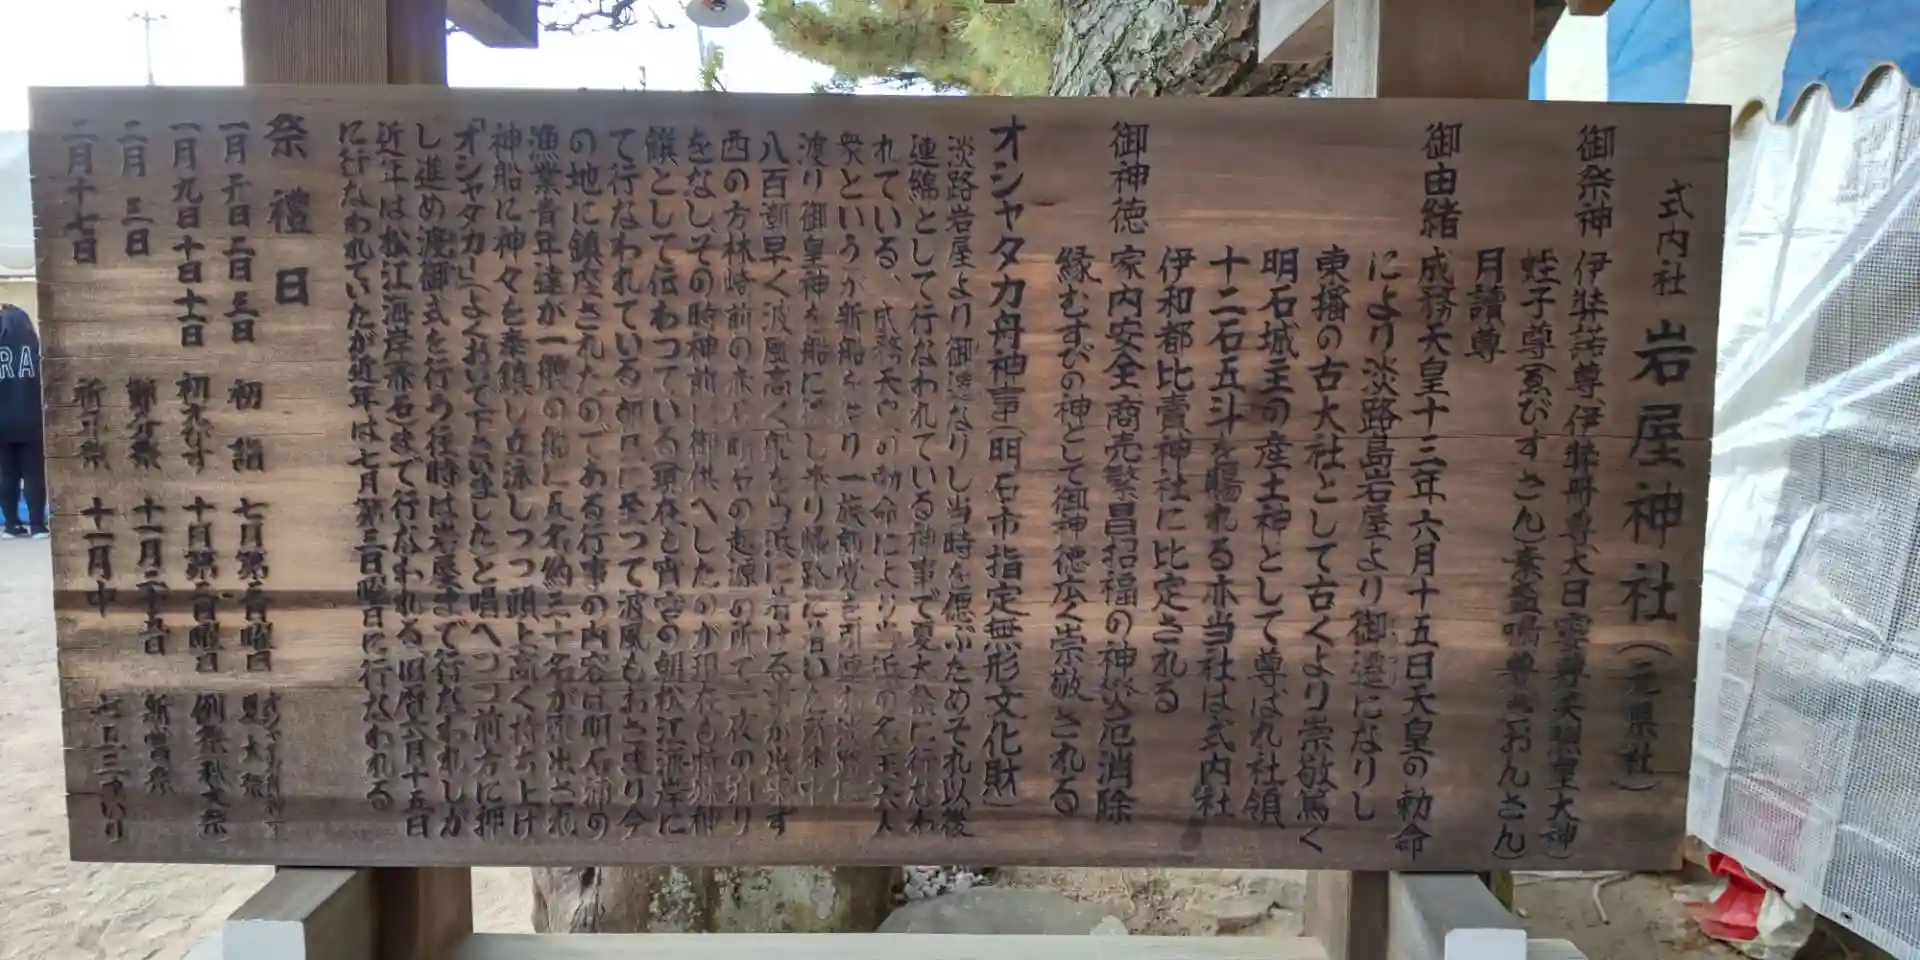 式内社 岩屋神社(元県社)
御祭神 伊弉諾尊、伊弉册尊、大日孁尊(天照皇大神)
蛭子尊(ゑびすさん)素盞嗚尊(ぎおんさん)
月讀尊
御由緒 成務天皇十三年六月十五日天皇の勅命
により淡路島岩屋より御遷になりし
東播の古大社として古くより崇敬篤く
明石城主の産土神として尊ばれ社領
十二石五斗を賜れる亦当社は式内社
伊和都比賣神社に比定される
御神徳 家内安全商売繁昌招福の神災厄消除
縁むすびの神として御神徳広く崇敬される
オシャタカ舟神事(明石市指定無形文化財)
淡路岩屋より御遷なりし当時を偲ぶためそれ以後
連綿として行なわれている神事で夏大祭に行なわ
れている、成務天皇の勅命により当浜の名主六人
衆というが新船を造り一族郎党を引連れ淡路に
渡り御皇神を船に遷し来り帰路に着いた所
八百潮早く波風高く船を当浜に着ける事が出来ず
西の方林崎前の赤石明石の起源の所て一夜の
をなしその時神前に御供へしたのが現在も特殊神
饌として伝わっている現在も宵宮の朝松江海岸に
て行なわれている朝凪に至って波風もおさまり今
の地に鎮座されたのである行事の内容は明石浦の
漁業青年達が一艘の船に五名約三十名が選出され
神船に神々を奉鎮し立泳しつつ頭上高く持ち上げ
「オシャタカー」(よくおいで下さいました)と唱へつつ前方に押
し進め渡御式を行う往時は岩屋まで行なわれしが
近年は松江海岸(赤石)まで行なわれる、旧暦六月十五日
に行なわれていたが近年は七月第三日曜日に行なわれる
祭禮日
一月元日二日三日 初詣 七月第三日曜日 夏大祭
一月九日十日十一日 初ゑびす 十月第二日曜日 例祭秋大祭
二月三日 節分祭 十一月二十三日 新嘗祭
二月十七日 祈年祭 十一月中 七五三まいり